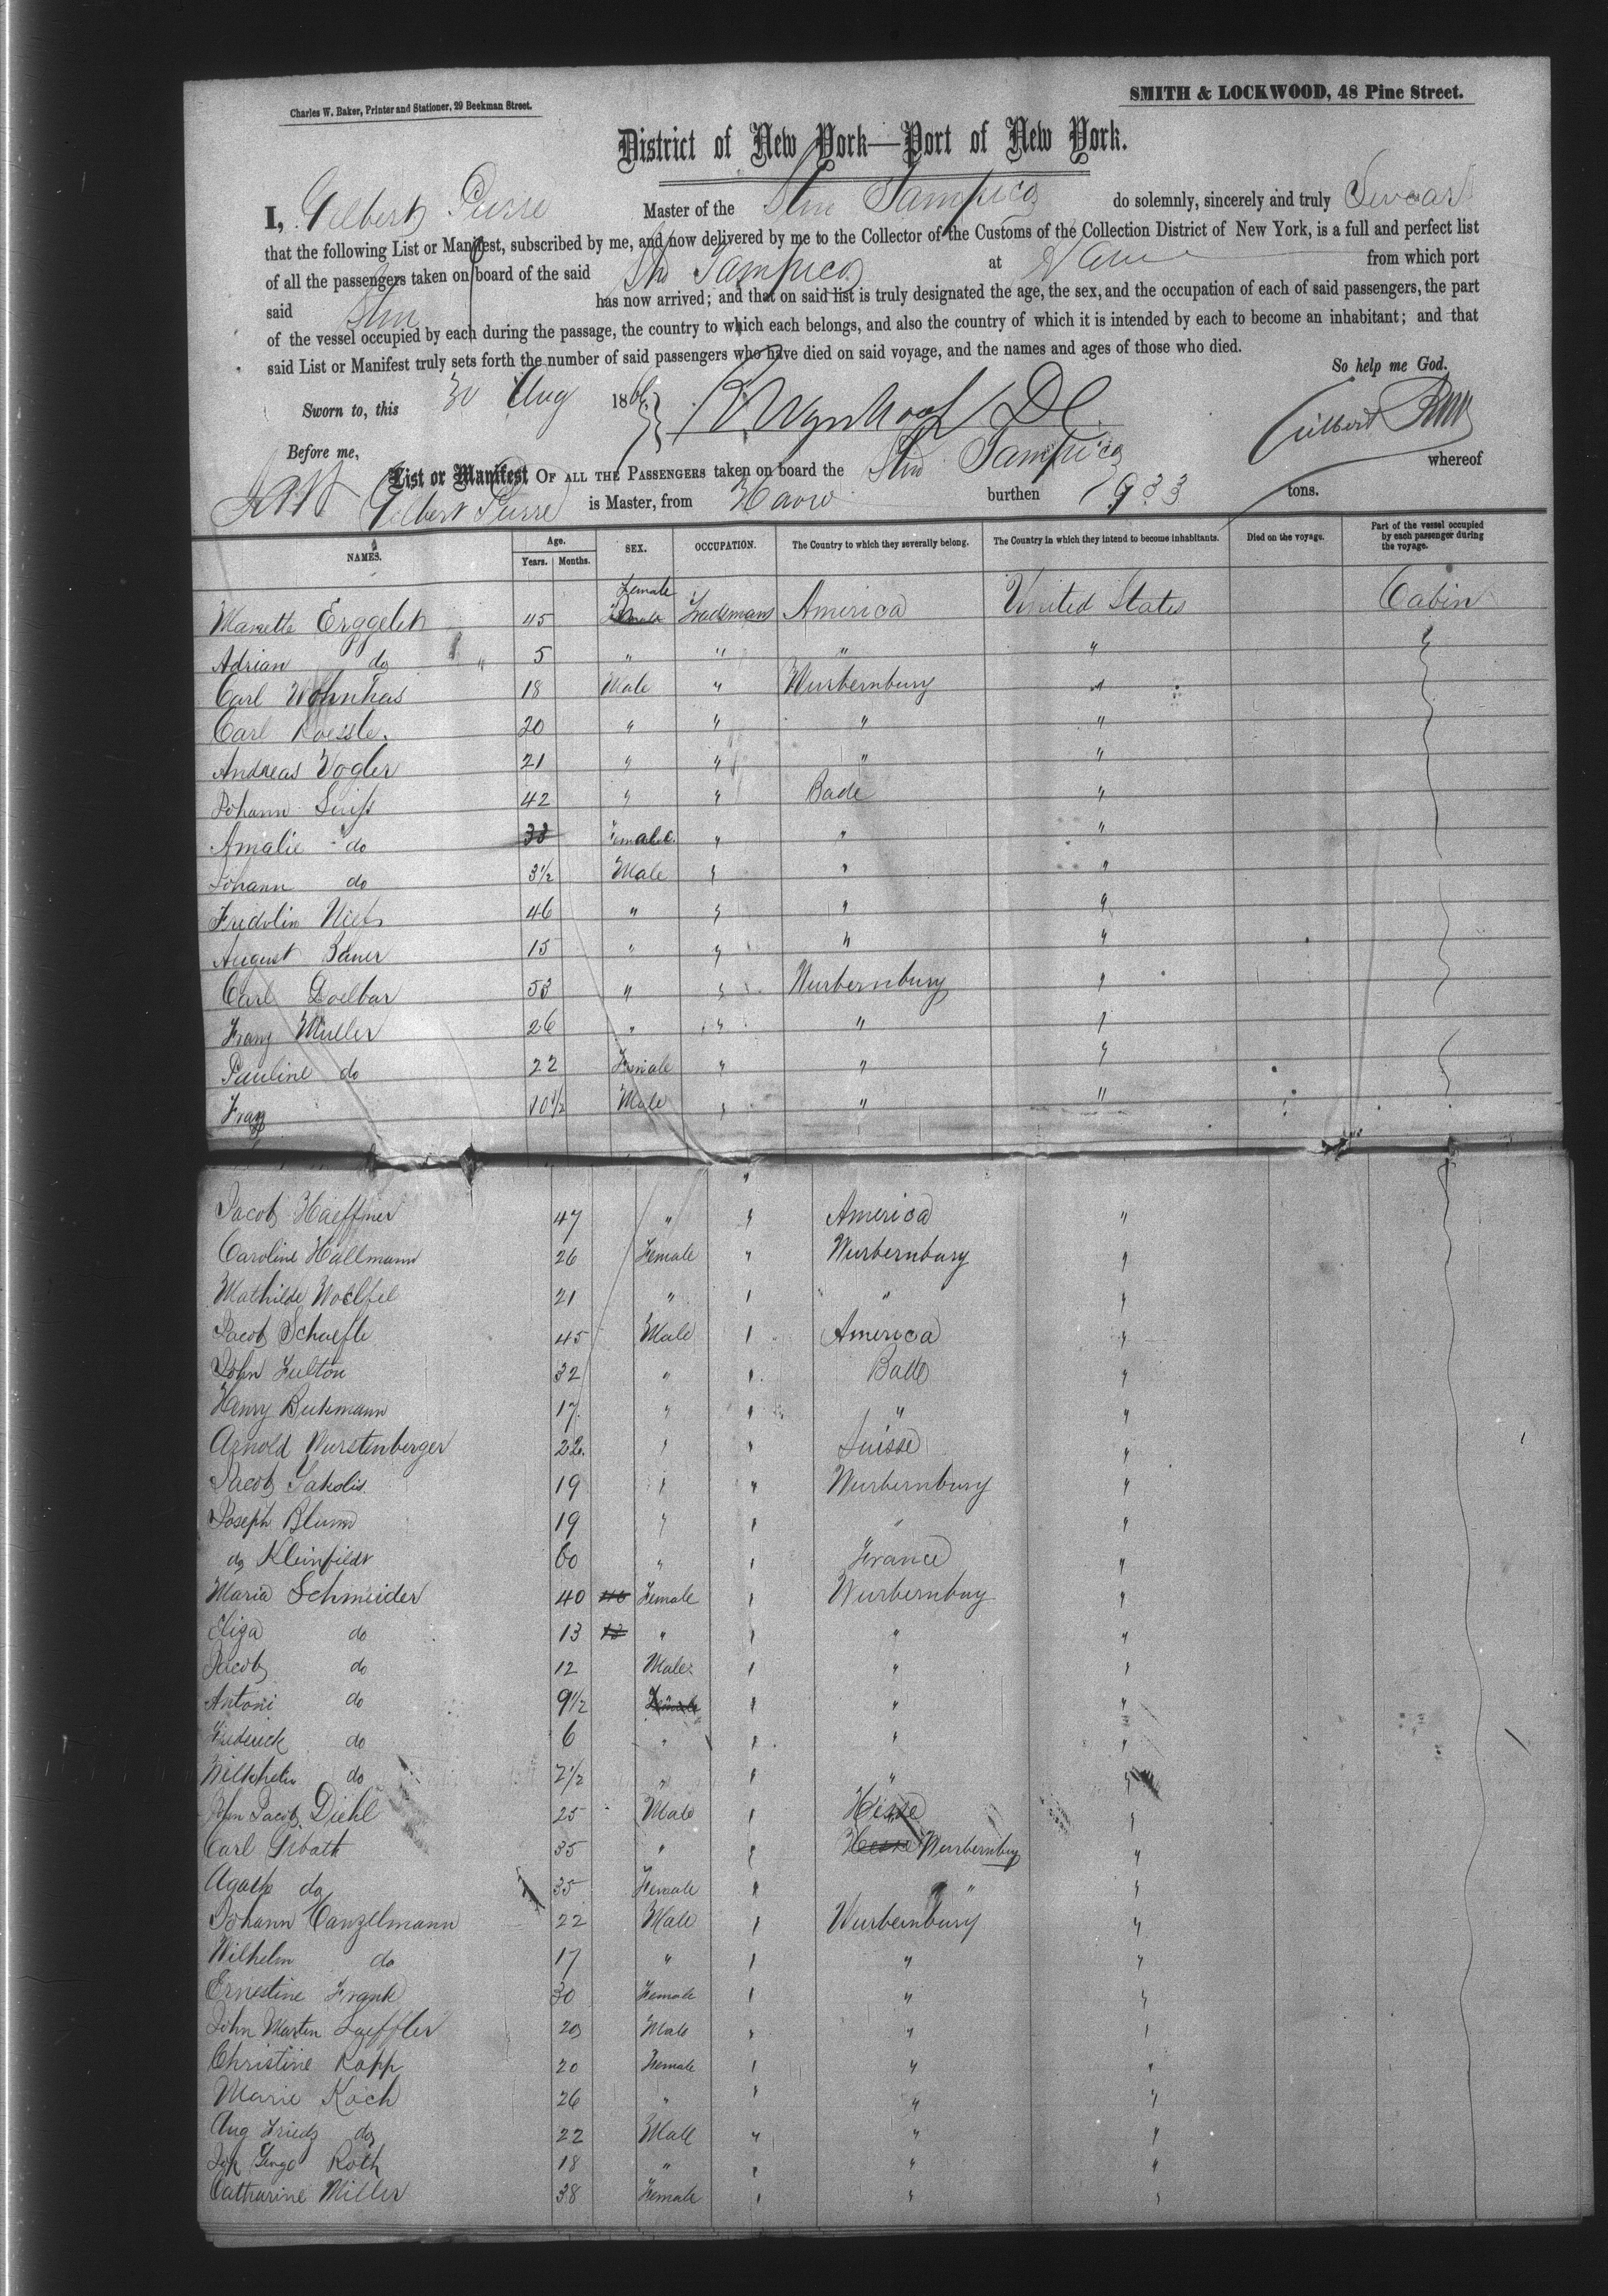 Charles W. Baker, Printer and Stationer, 29 Beekman Street.
SMITH & LOCKWOOD, 48 Pine Street.
District of New York—Port of New York.
I, Gilbert Master of the Stm Tampico do solemnly, sincerely and truly Swear
that the following List or Manifest, subscribed by me, and now delivered by me to the Collector of the Customs of the Collection District of New York, is a full and perfect list
of all the passengers taken on board of the said Stm Tampico at from which port
said Stm has now arrived; and that on said list is truly designated the age, the sex, and the occupation of each of said passengers, the part
of the vessel occupied by each during the passage, the country to which each belongs, and also the country of which it is intended by each to become an inhabitant; and that
said List or Manifest truly sets forth the number of said passengers who have died on said voyage, and the names and ages of those who died.
So help me God.
Sworn to, this 30 Aug 186
Before me, Gilbert
List or Manifest OF ALL THE PASSENGERS taken on board the Stm Tampico whereof
Gilbert is Master, from Havre burthen 1933 tons.
NAMES. Age. Years. Months. SEX. OCCUPATION. The Country to which they severally belong. The Country in which they intend to become inhabitants. Died on the voyage. Part of the vessel occupied by each passenger during the voyage.
Female
45 Tradesmans America United States Cabin
Adrian do " 5 " " " "
Carl Wohnhas 18 Male " Wurbernbury "
Carl Roessle. 20 " " " "
Andreas Vogler 21 " " " "
Johann 42 " " Bade "
Amalie do 38 Female " " "
Johann do 3½ Male " " "
Fridolin 46 " " " "
August 15 " " " "
Carl Doelbar 53 " " Wurbernbury "
Franz Müller 26 " " " "
Pauline do 22 Female " " "
Franz 10½ Male " " "
Jacob Haeffner 47 " " America "
Caroline Hallmann 26 Female " Wurbernbury "
Mathilde Woelfel 21 " " " "
Jacob Schaefle 45 Male " America "
John Fulton 32 " " Bade "
Henry 17 " " " "
Arnold Wurstenberger 22 " " Suisse "
Jacob 19 " " Wurbernbury "
Joseph Blum 19 " " " "
do 60 " " France "
Maria Schneider 40 Female " Wurbernbury "
Eliza do 13 " " " "
Jacob do 12 Male " " "
Antoni do 9½ Female " " "
Frederick do 6 " " " "
do 2½ " " " "
John Jacob Diehl 25 Male " Hesse "
Carl 35 " " Hesse Wurbernbury "
Agath do 35 Female " " "
Johann Canzelmann 22 Male " Wurbernbury "
Wilhelm do 17 " " " "
Ernestine Frank 30 Female " " "
John Marten Laeffler 20 Male " " "
Christine Rapp 20 Female " " "
Marie Koch 26 " " " "
Aug do 22 Male " " "
Roth 18 " " " "
Catharine Miller 38 Female " " "